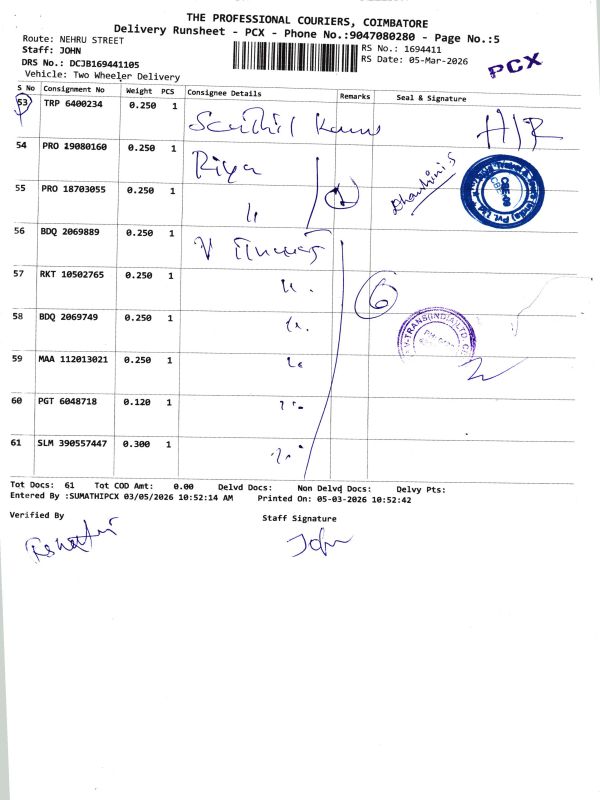 THE PROFESSIONAL COURIERS, COIMBATORE
Delivery Runsheet - PCX - Phone No.:9047080280 - Page No.:5
Route: NEHRU STREET
RS No.: 1694411
Staff: JOHN
RS Date: 05-Mar-2026
DRS No.: DCJB169441105
Vehicle: Two Wheeler Delivery
PCX
S No Consignment No Weight PCS Consignee Details Remarks Seal & Signature
53 TRP 6400234 0.250 1 Senthil
54 PRO 19080160 0.250 1 Riya
55 PRO 18703055 0.250 1 Dharshini S
56 BDQ 2069889 0.250 1
57 RKT 10502765 0.250 1 6
58 BDQ 2069749 0.250 1
59 MAA 112013021 0.250 1
60 PGT 6048718 0.120 1
61 SLM 390557447 0.300 1
Tot Docs: 61 Tot COD Amt: 0.00 Delvd Docs: Non Delvd Docs: Delvy Pts:
Entered By :SUMATHIPCX 03/05/2026 10:52:14 AM Printed On: 05-03-2026 10:52:42
Verified By
Staff Signature
John